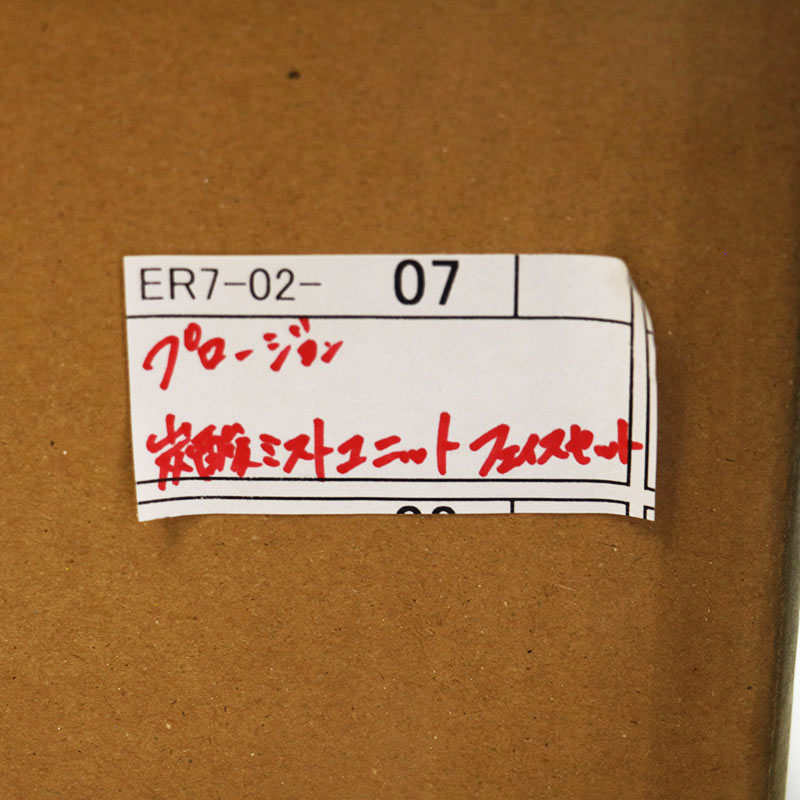 ER7-02- 07
プロージョン
炭酸ミストユニット フェイスセット